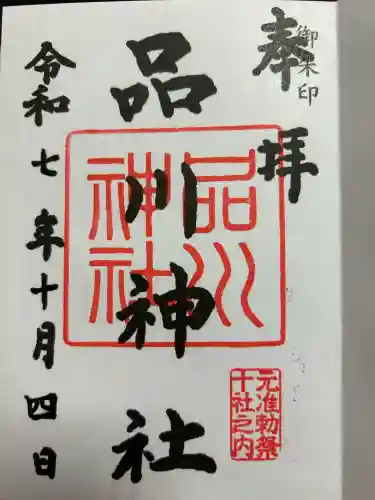 御朱印
奉拝
品川神社
品川
神社
元准勅祭
十社之内
令和七年十月四日